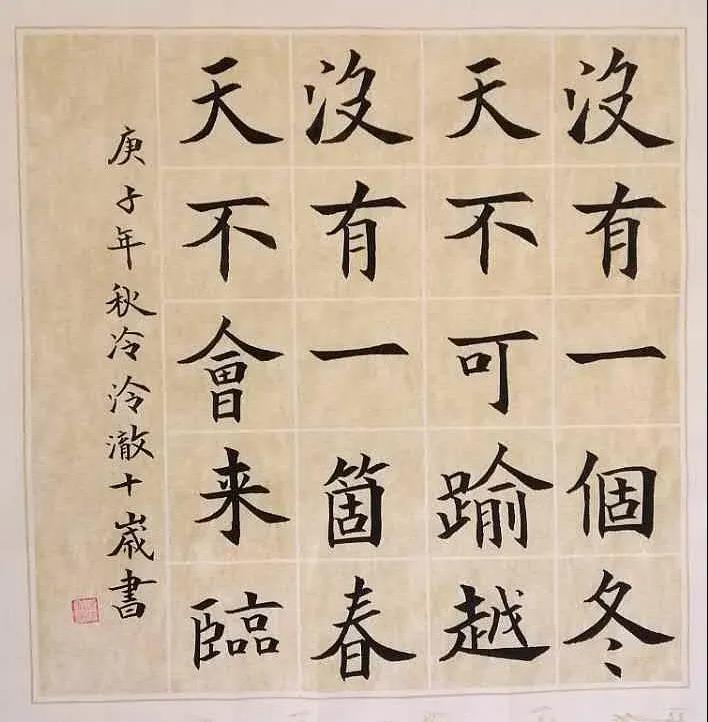 没有一個冬
天不可踰越
没有一箇春
天不會来臨
庚子年秋冷泠澈十歲書